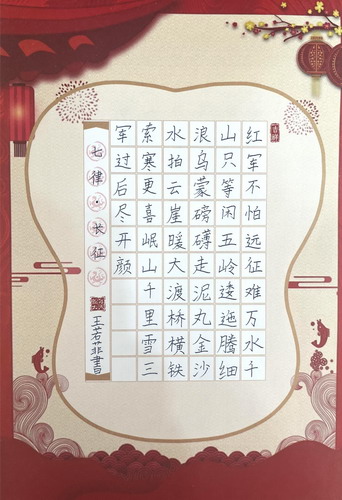 吉祥
红军不怕远征难万水千
山只等闲五岭逶迤腾细
浪乌蒙磅礴走泥丸金沙
水拍云崖暖大渡桥横铁
索寒更喜岷山千里雪三
军过后尽开颜
七律·长征
王若菲書